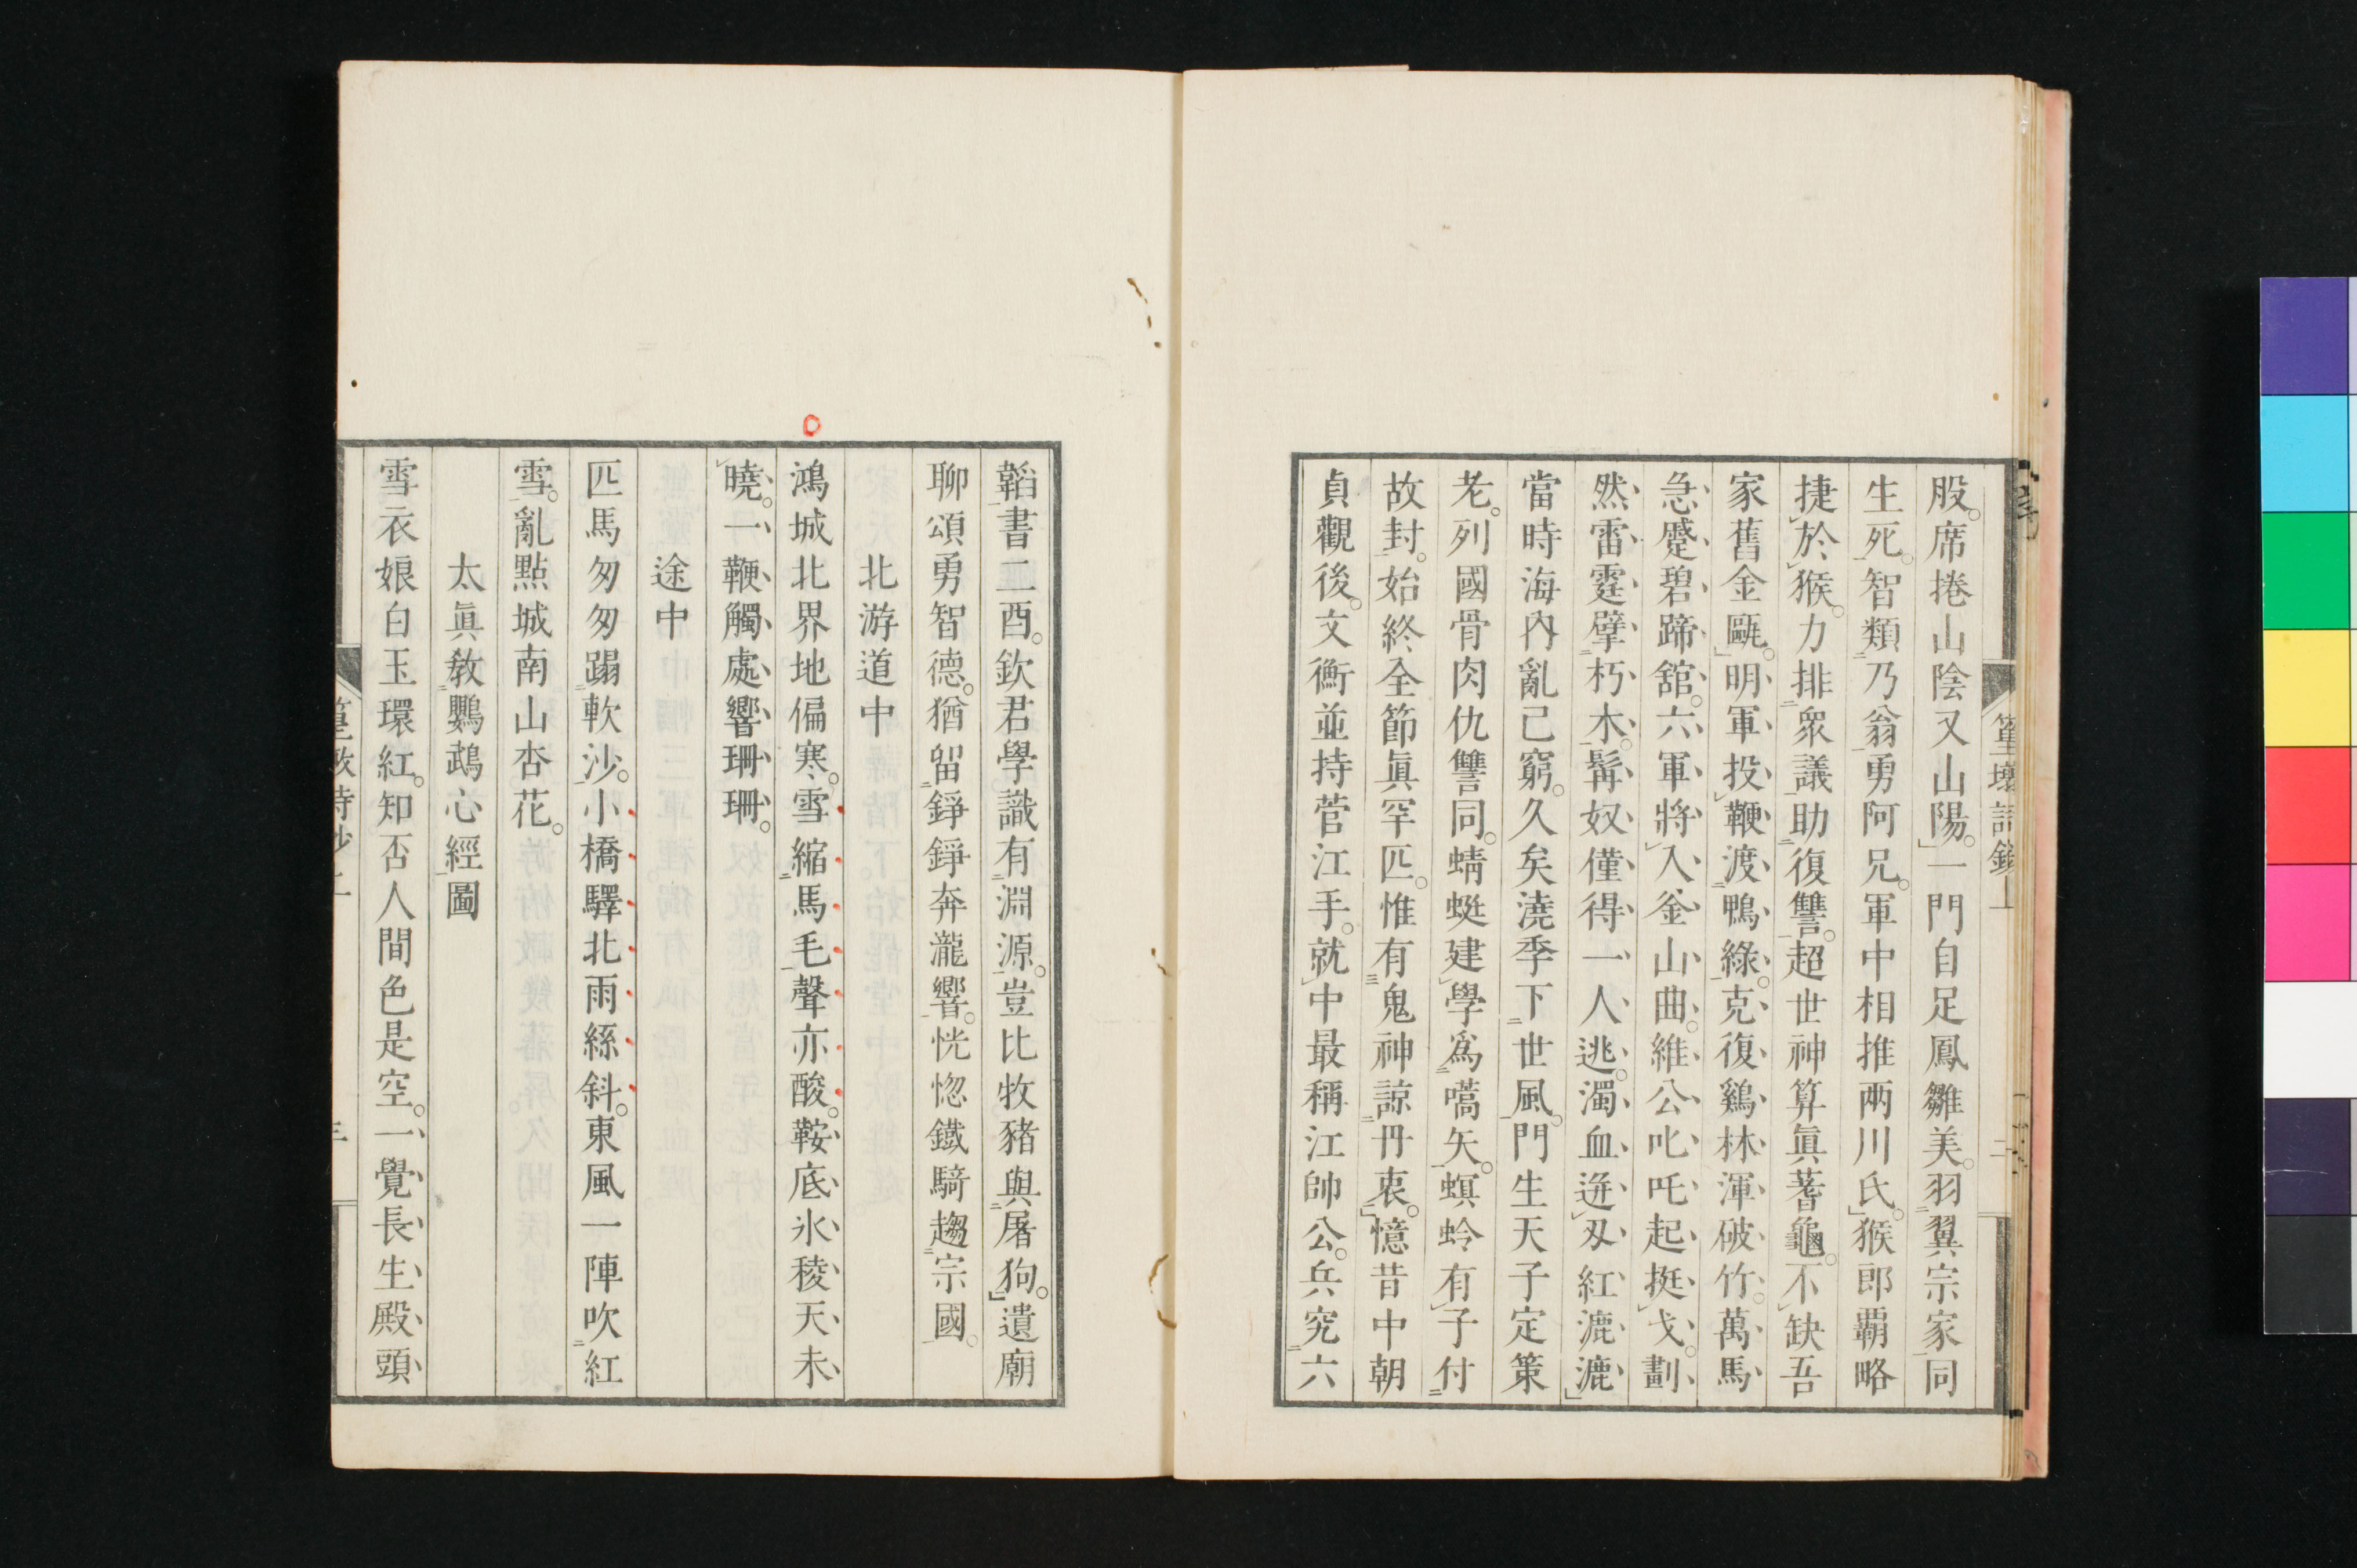 股。席捲山陰又山陽。一門自足鳳雛美。羽翼宗家同
生死。智類乃翁勇阿兄。軍中相推兩川氏。猴郎覇略
捷於猴。力排衆議助復讐。超世神算眞蓍龜。不缺吾
家舊金甌。明軍投鞭渡鴨綠。克復鷄林渾破竹。萬馬
急蹙碧蹄舘。六軍將入釜山曲。維公叱吒起挺戈。劃
然雷霆擘朽木。髯奴僅得一人逃。濁血迸刄紅漉漉。
當時海內亂已窮。久矣澆季下世風。門生天子定策
老。列國骨肉仇讐同。蜻蜓建學爲嚆矢。螟蛉有子付
故封。始終全節眞罕匹。惟有鬼神諒丹衷。憶昔中朝
貞觀後。文衡並持菅江手。就中最稱江帥公。兵究六
韜書二酉。欽君學識有淵源。豈比牧豬與屠狗。遺廟
聊頌勇智德。猶留錚錚奔瀧響。恍惚鐵騎趨宗國。
北游道中
鴻城北界地偏寒。雪縮馬毛聲亦酸。鞍底氷稜天未
曉。一鞭觸處響珊珊。
途中
匹馬匆匆蹋軟沙。小橋驛北雨絲斜。東風一陣吹紅
雪。亂點城南山杏花。
太眞敎鸚鵡心經圖
雪衣娘白玉環紅。知否人間色是空。一覺長生殿頭